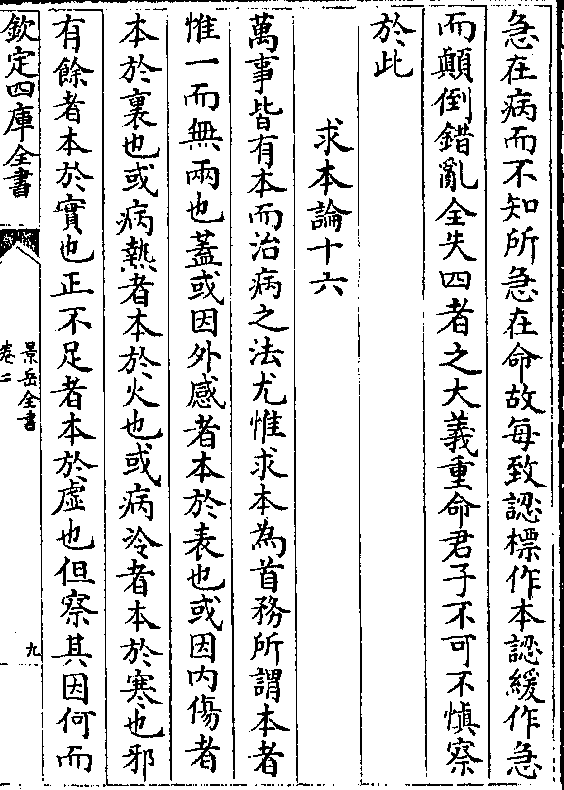 急在病而不知所急在命故每致認標作本認緩作急
而顛倒錯亂全失四者之大義重命君子不可不慎察
於此
求本論十六
萬事皆有本而治病之法尤惟求本為首務所謂本者
惟一而無兩也蓋或因外感者本於表也或因内傷者
本於裏也或病熱者本於火也或病冷者本於寒也邪
有餘者本於實也正不足者本於虛也但察其因何而
欽定四庫全書
景岳全書
卷二
九